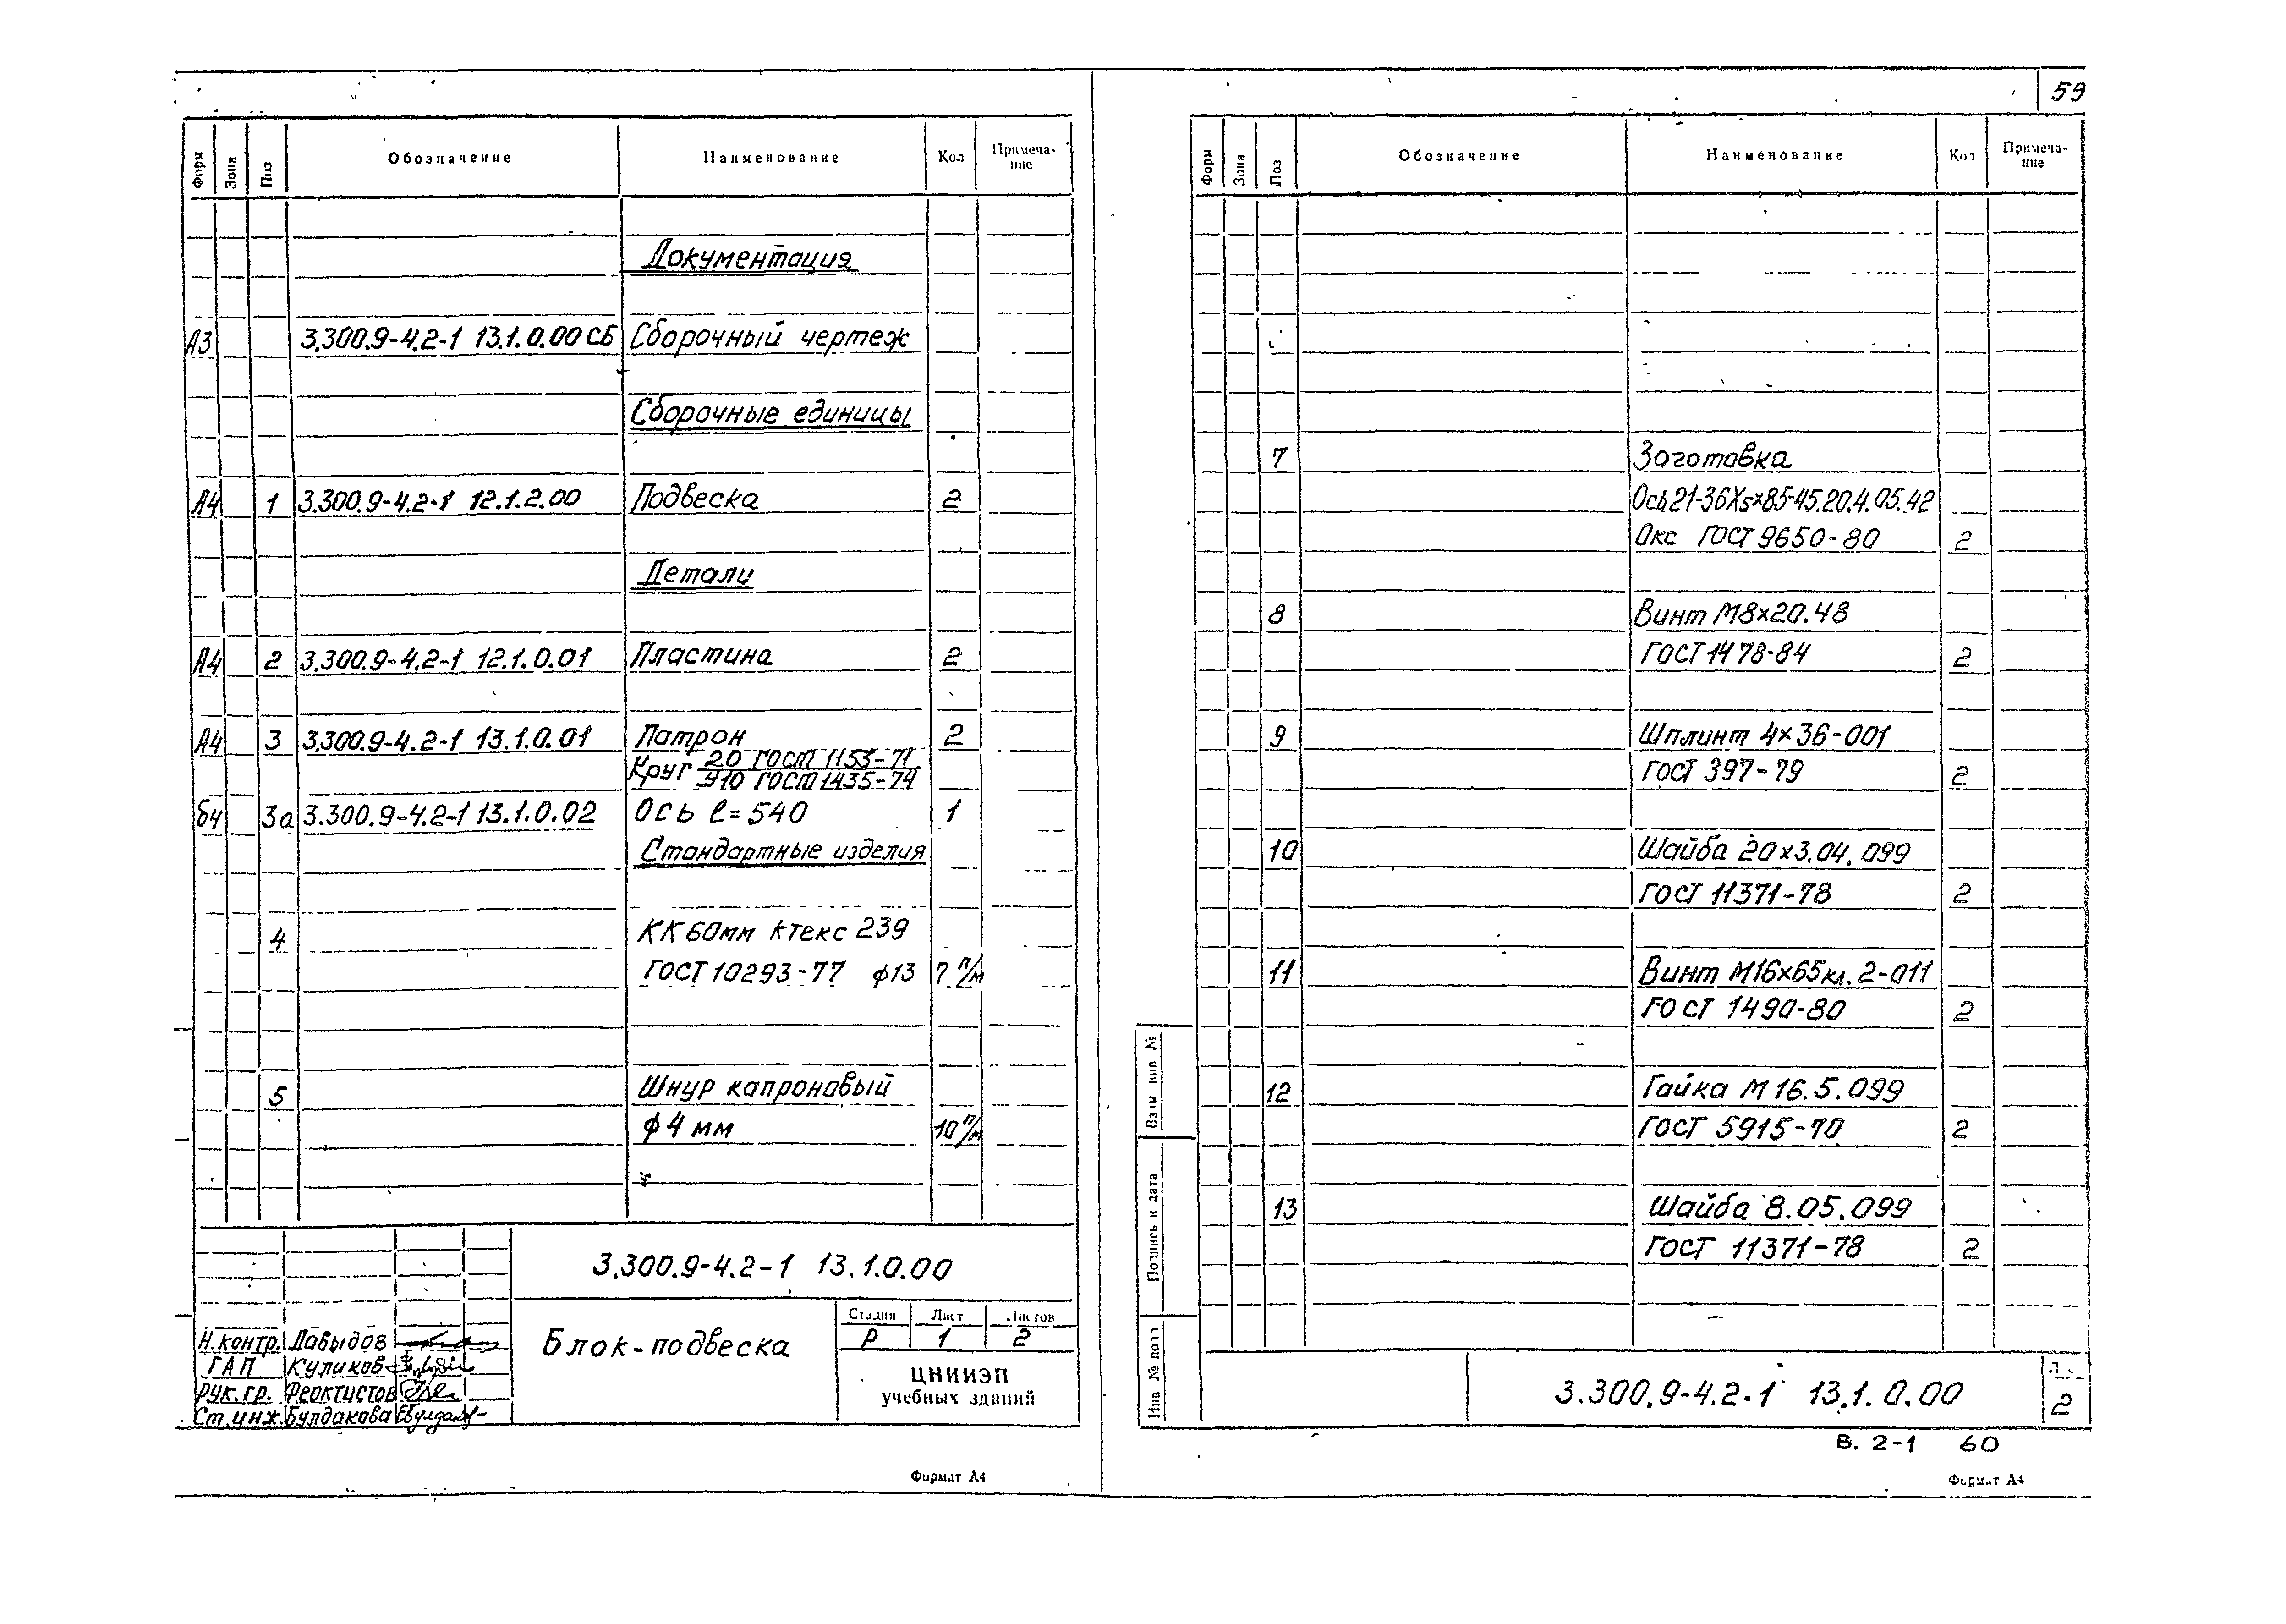 59
Форм Зона Поз Обозначение Наименование Кол Примеча-
ние
Документация
А3 3.300.9-4.2-1 13.1.0.00 СБ Сборочный чертеж
Сборочные единицы
А4 1 3.300.9-4.2-1 12.1.2.00 Подвеска 2
Детали
А4 2 3.300.9-4.2-1 12.1.0.01 Пластина 2
А4 3 3.300.9-4.2-1 13.1.0.01 Патрон 2
Круг 20 ГОСТ 1153-71
У10 ГОСТ 1435-74
бч 3а 3.300.9-4.2-1 13.1.0.02 Ось ℓ=540 1
Стандартные изделия
4 КК 60мм ктекс 239
ГОСТ 10293-77 ф13 7 п/м
5 Шнур капроновый
ф 4 мм 10 п/м
3.300.9-4.2-1 13.1.0.00
Блок-подвеска
Стадия Лист Листов
Р 1 2
ЦНИИЭП
учебных зданий
Н.контр. Давыдов
ГАП Куликов
Рук.гр. Феоктистов
Ст.инж. Булдакова
Формат А4
Форм Зона Поз Обозначение Наименование Кол Примеча-
ние
7 Заготовка
Ось 21-36Х5х85-45.20.4.05.42
Окс ГОСТ 9650-80 2
8 Винт М8х20.48
ГОСТ 1478-84 2
9 Шплинт 4х36-001
ГОСТ 397-79 2
10 Шайба 20х3.04.099
ГОСТ 11371-78 2
11 Винт М16х65кл.2-011
ГОСТ 1490-80 2
12 Гайка М 16.5.099
ГОСТ 5915-70 2
13 Шайба 8.05.099
ГОСТ 11371-78 2
Взам инв №
Подпись и дата
Инв № подл
3.300.9-4.2-1 13.1.0.00
2
В. 2-1 60
Формат А4